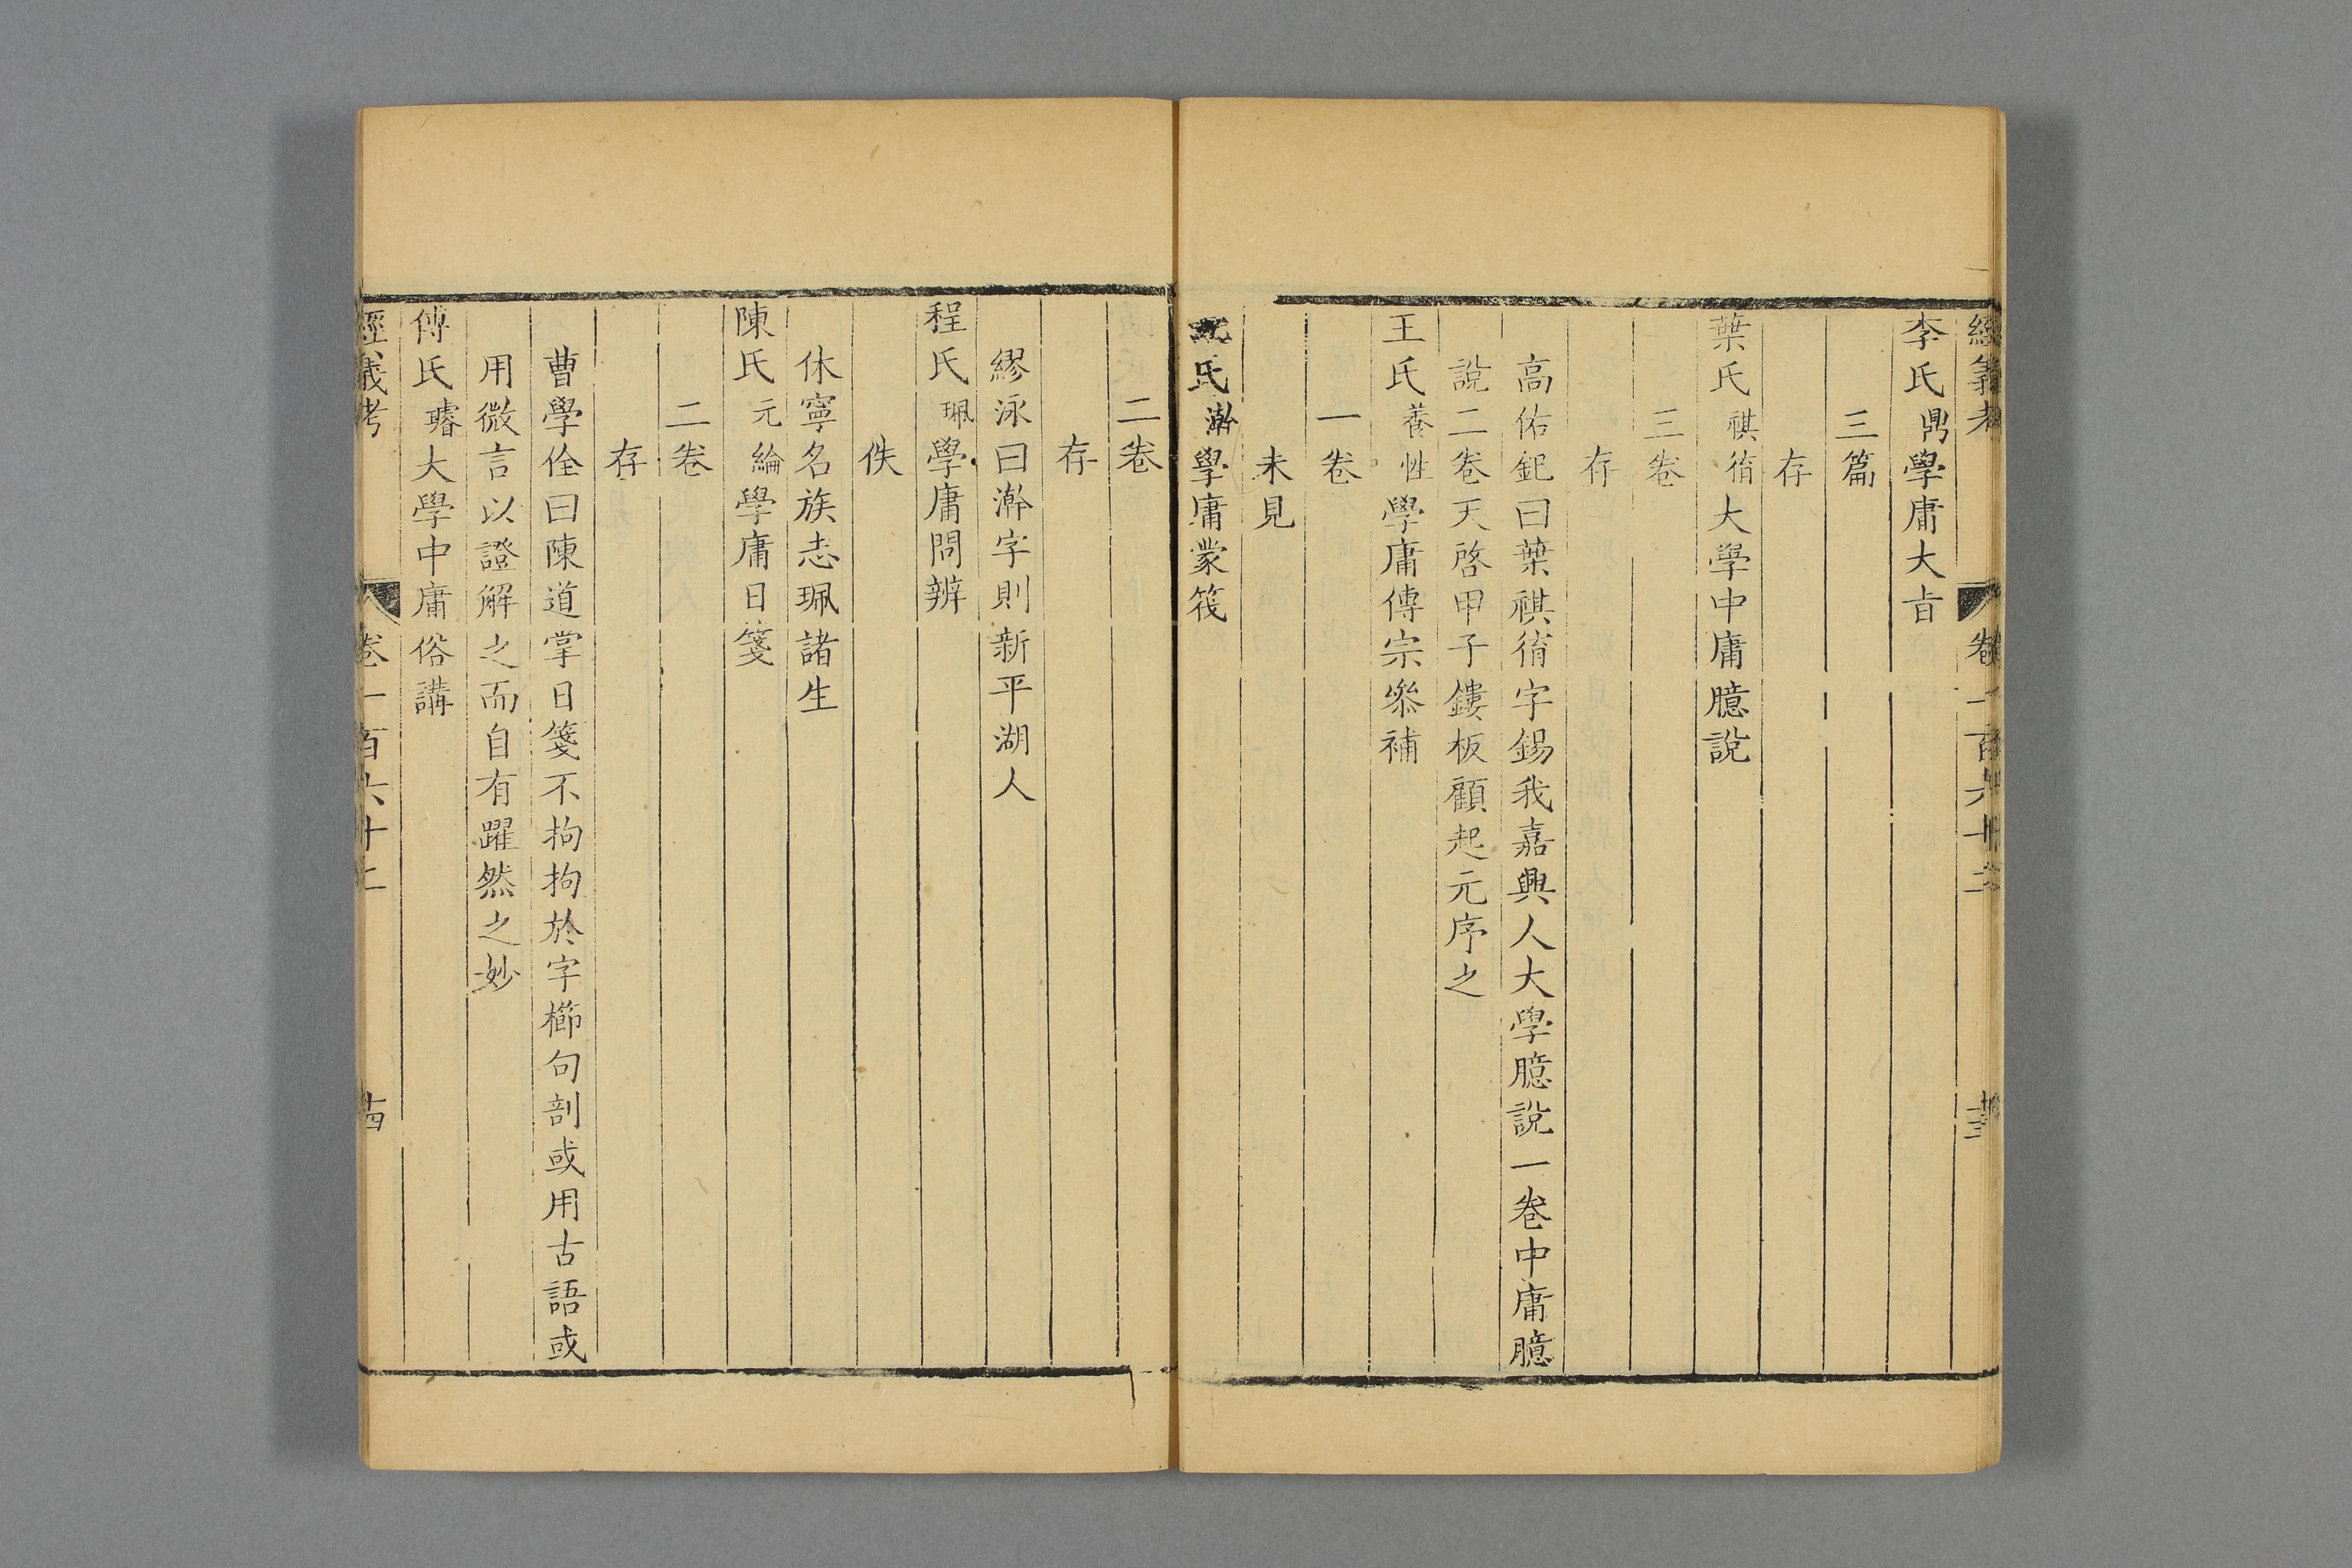 經義考 卷一百六十二 十三
李氏鼎學庸大旨
三篇
存
葉氏祺䘙大學中庸臆說
三卷
存
高佑釲曰葉祺䘙字錫我嘉興人大學臆說一卷中庸臆
說二卷天啓甲子鏤板顧起元序之
王氏養性學庸傳宗叅補
一卷
未見
氏瀚學庸蒙筏
二卷
存
繆泳曰瀚字則新平湖人
程氏珮學庸問辨
佚
休寧名族志珮諸生
陳氏元綸學庸日箋
二卷
存
曹學佺曰陳道掌日箋不拘拘於字櫛句剖或用古語或
用微言以證解之而自有躍然之妙
傅氏㻸大學中庸俗講
經義考 卷一百六十二 十四